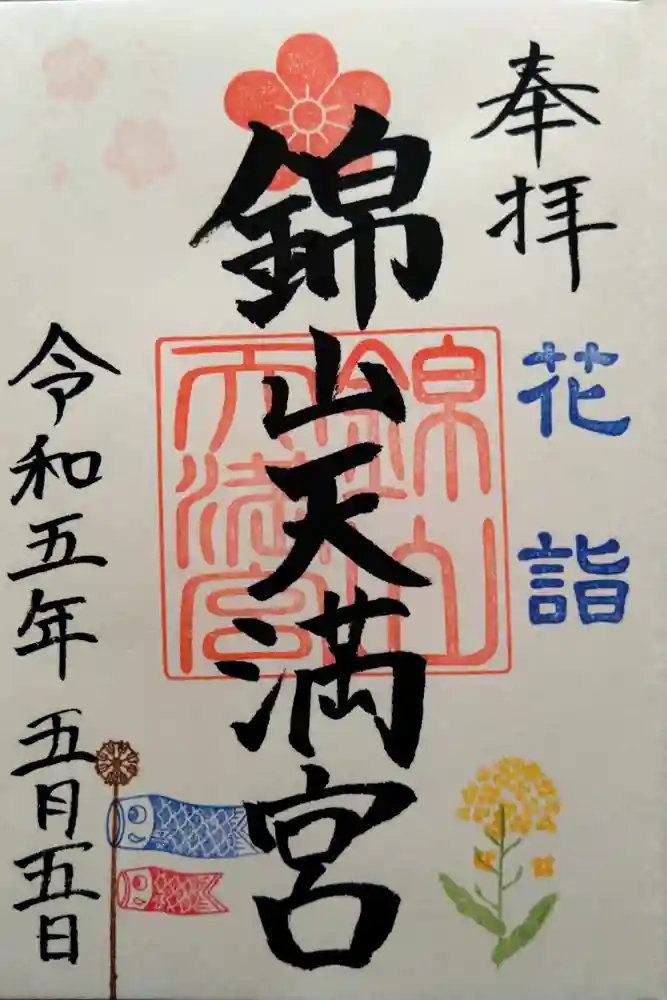 奉拝
花詣
錦山天満宮
錦山
天満宮
令和五年五月五日